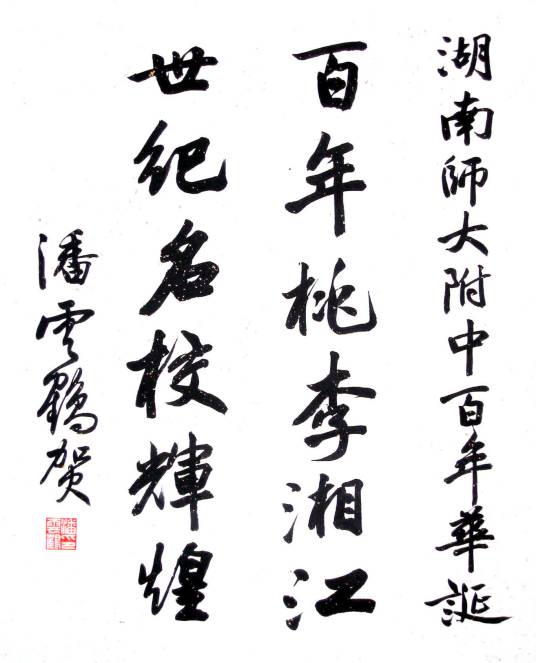 湖南師大附中百年華誕
百年桃李湘江
世紀名校輝煌
潘雲鶴贺